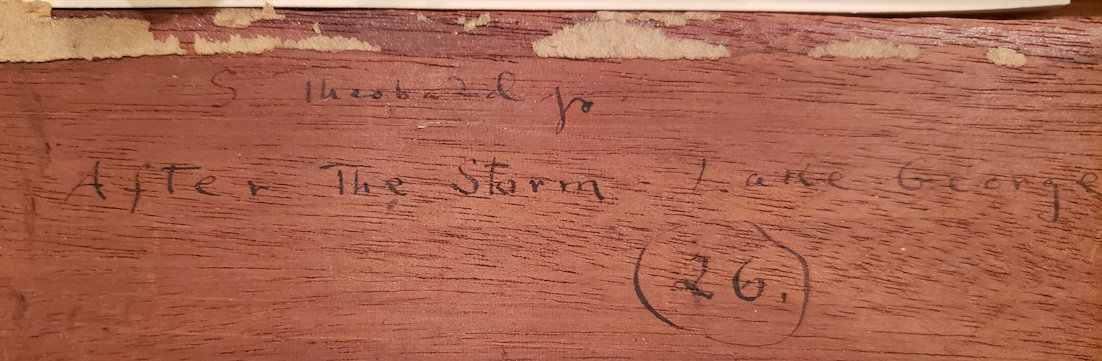 S Theobald Jr
After The Storm - Lake George
(26.)